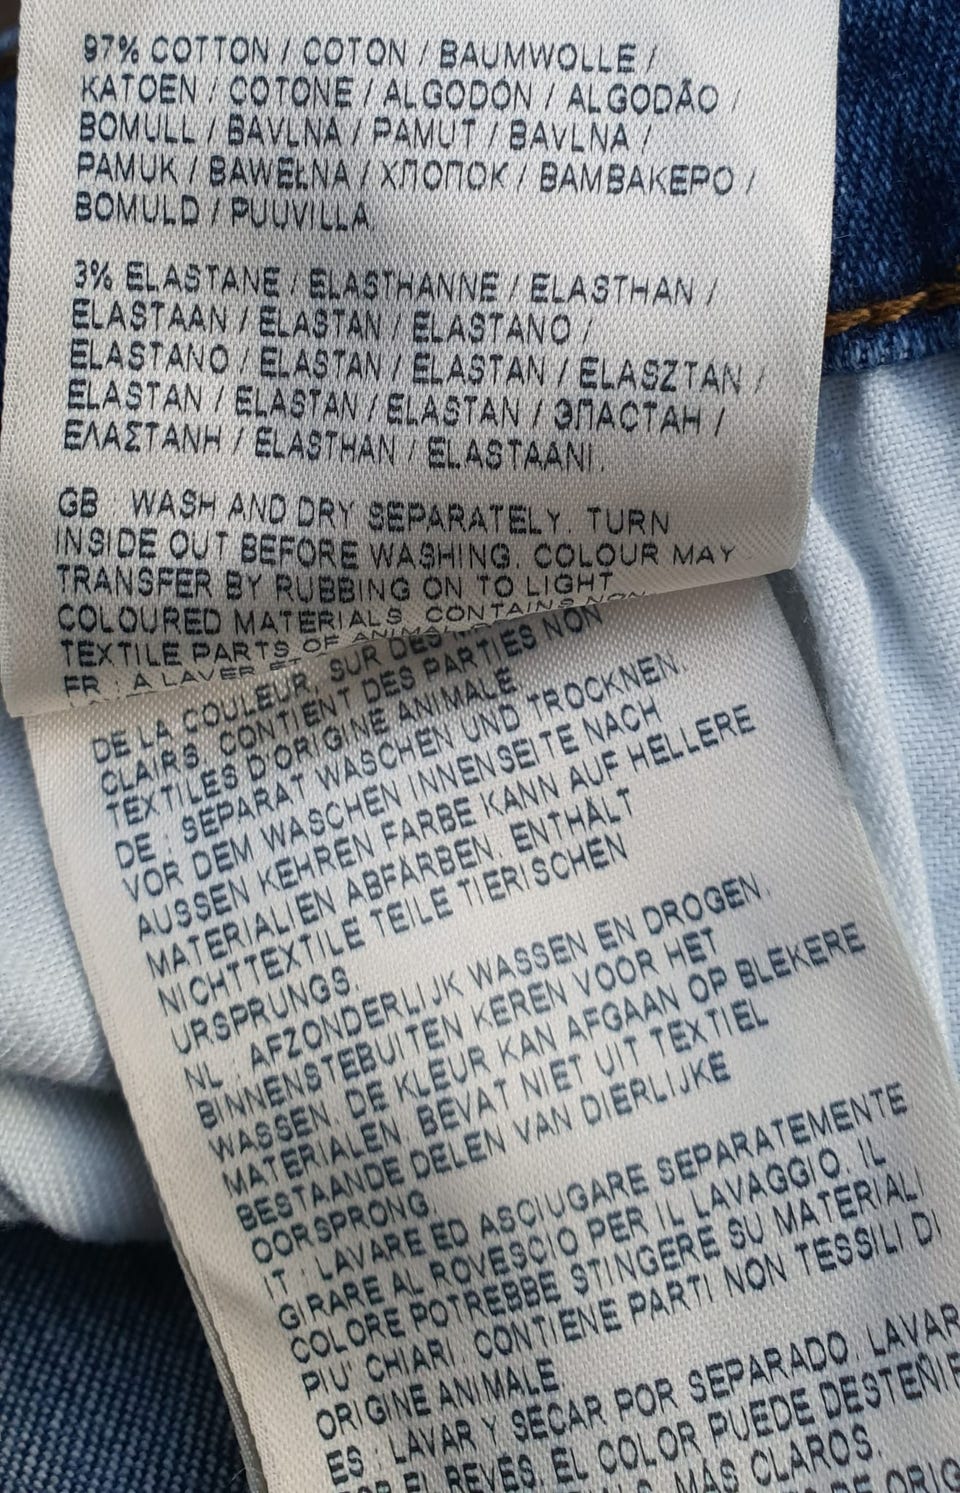 97% COTTON / COTON / BAUMWOLLE /
KATOEN / COTONE / ALGODÓN / ALGODÃO /
BOMULL / BAVLNA / PAMUT / BAVLNA /
PAMUK / BAWEŁNA / ХЛОПОК / ΒΑΜΒΑΚΕΡΟ /
BOMULD / PUUVILLA
3% ELASTANE / ELASTHANNE / ELASTHAN /
ELASTAAN / ELASTAN / ELASTANO /
ELASTANO / ELASTAN / ELASTAN / ELASZTAN /
ELASTAN / ELASTAN / ELASTAN / ЭЛАСТАН /
ΕΛΑΣΤΑΝΗ / ELASTHAN / ELASTAANI.
GB : WASH AND DRY SEPARATELY. TURN
INSIDE OUT BEFORE WASHING. COLOUR MAY
TRANSFER BY RUBBING ON TO LIGHT
COLOURED MATERIALS. CONTAINS NON
TEXTILE PARTS OF
FR : A LAVER ET
DE LA COULEUR, SUR DES
CLAIRS. CONTIENT DES PARTIES NON
TEXTILES D'ORIGINE ANIMALE
DE : SEPARAT WASCHEN UND TROCKNEN.
VOR DEM WASCHEN INNENSEITE NACH
AUSSEN KEHREN FARBE KANN AUF HELLERE
MATERIALIEN ABFÄRBEN. ENTHÄLT
NICHTTEXTILE TEILE TIERISCHEN
URSPRUNGS.
NL : AFZONDERLIJK WASSEN EN DROGEN.
BINNENSTEBUITEN KEREN VOOR HET
WASSEN. DE KLEUR KAN AFGAAN OP BLEKERE
MATERIALEN. BEVAT NIET UIT TEXTIEL
BESTAANDE DELEN VAN DIERLIJKE
OORSPRONG.
IT : LAVARE ED ASCIUGARE SEPARATEMENTE
GIRARE AL ROVESCIO PER IL LAVAGGIO. IL
COLORE POTREBBE STINGERE SU MATERIALI
PIU' CHIARI. CONTIENE PARTI NON TESSILI DI
ORIGINE ANIMALE
ES : LAVAR Y SECAR POR SEPARADO. LAVAR
POR EL REVÉS. EL COLOR PUEDE DESTEÑIR
MÁS CLAROS.